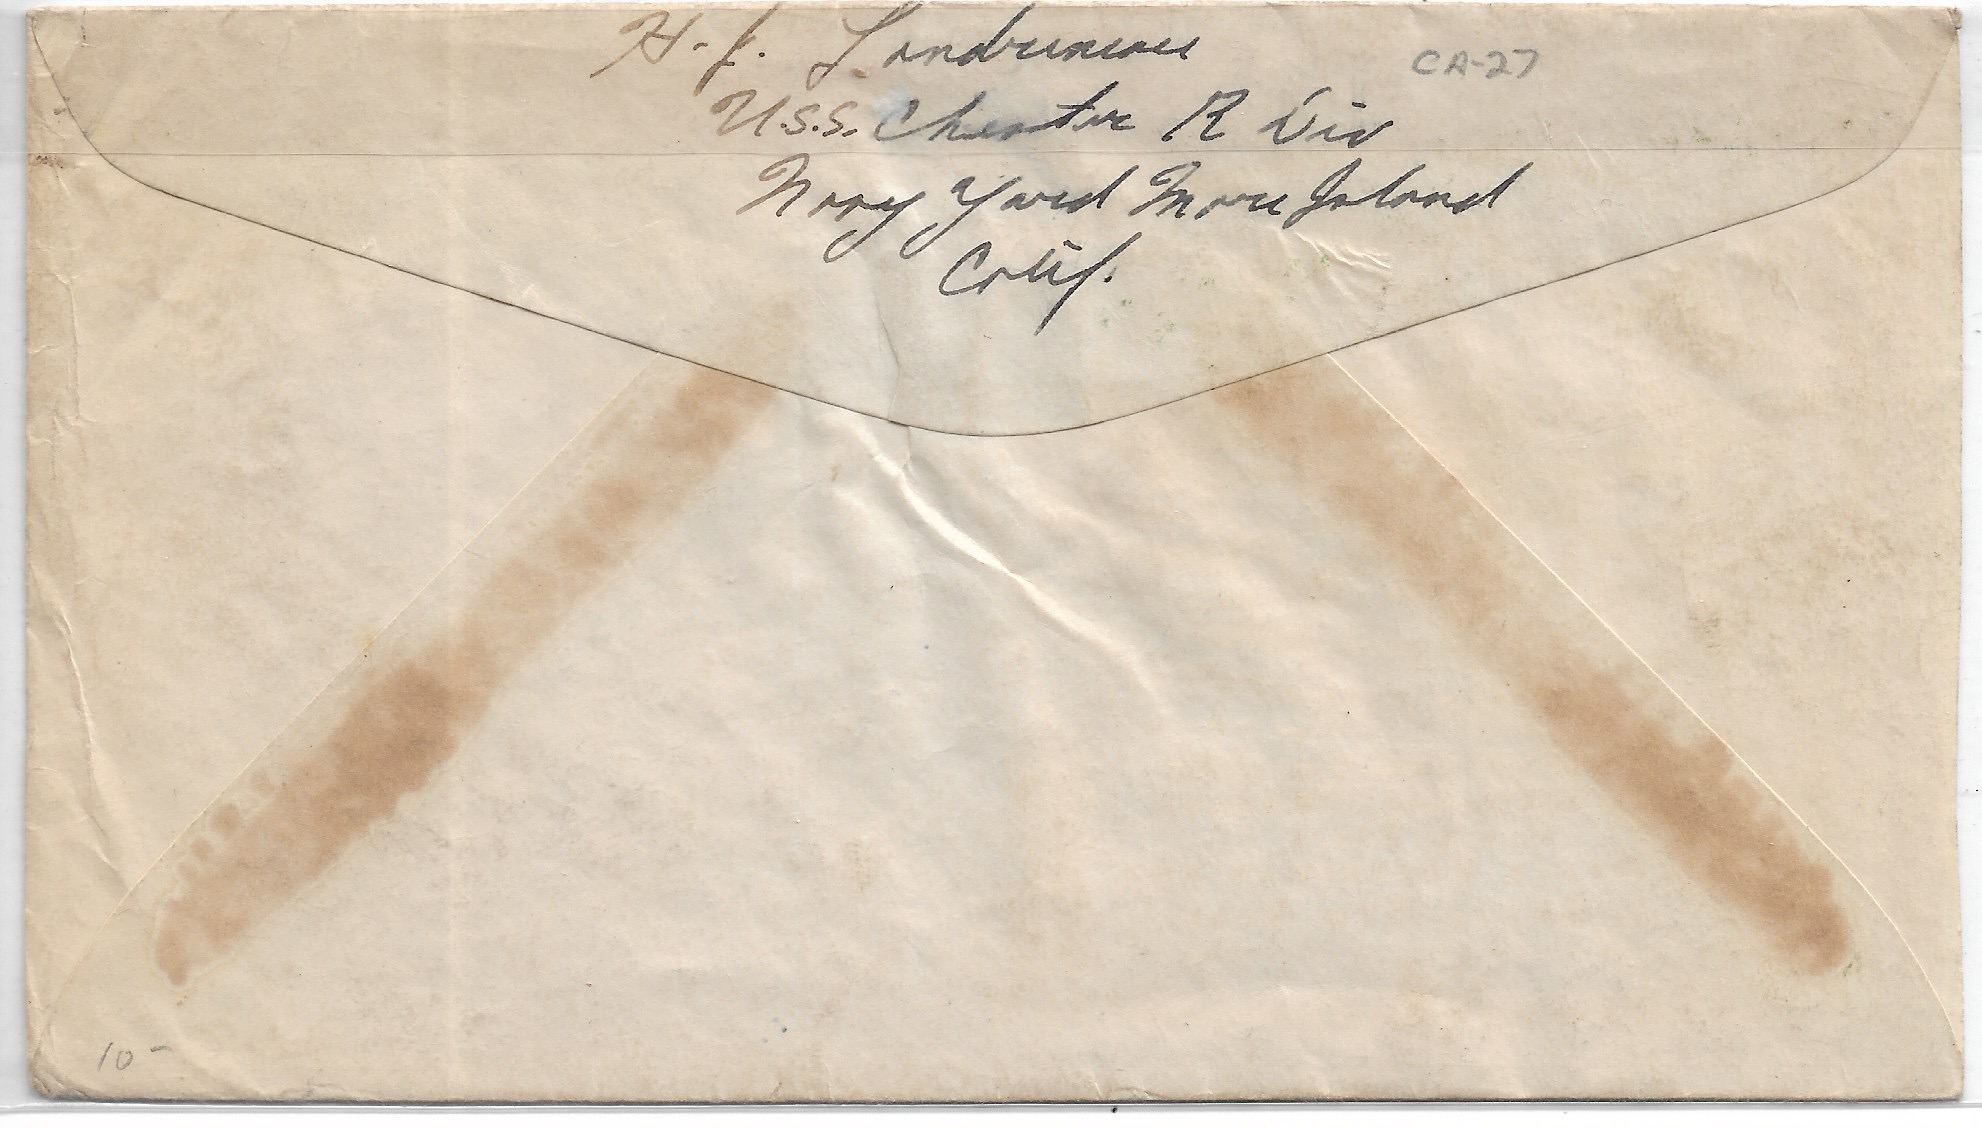 H. J.
CA-27
U.S.S. Chester R Div
Navy Yard Mare Island
Calif.
10-